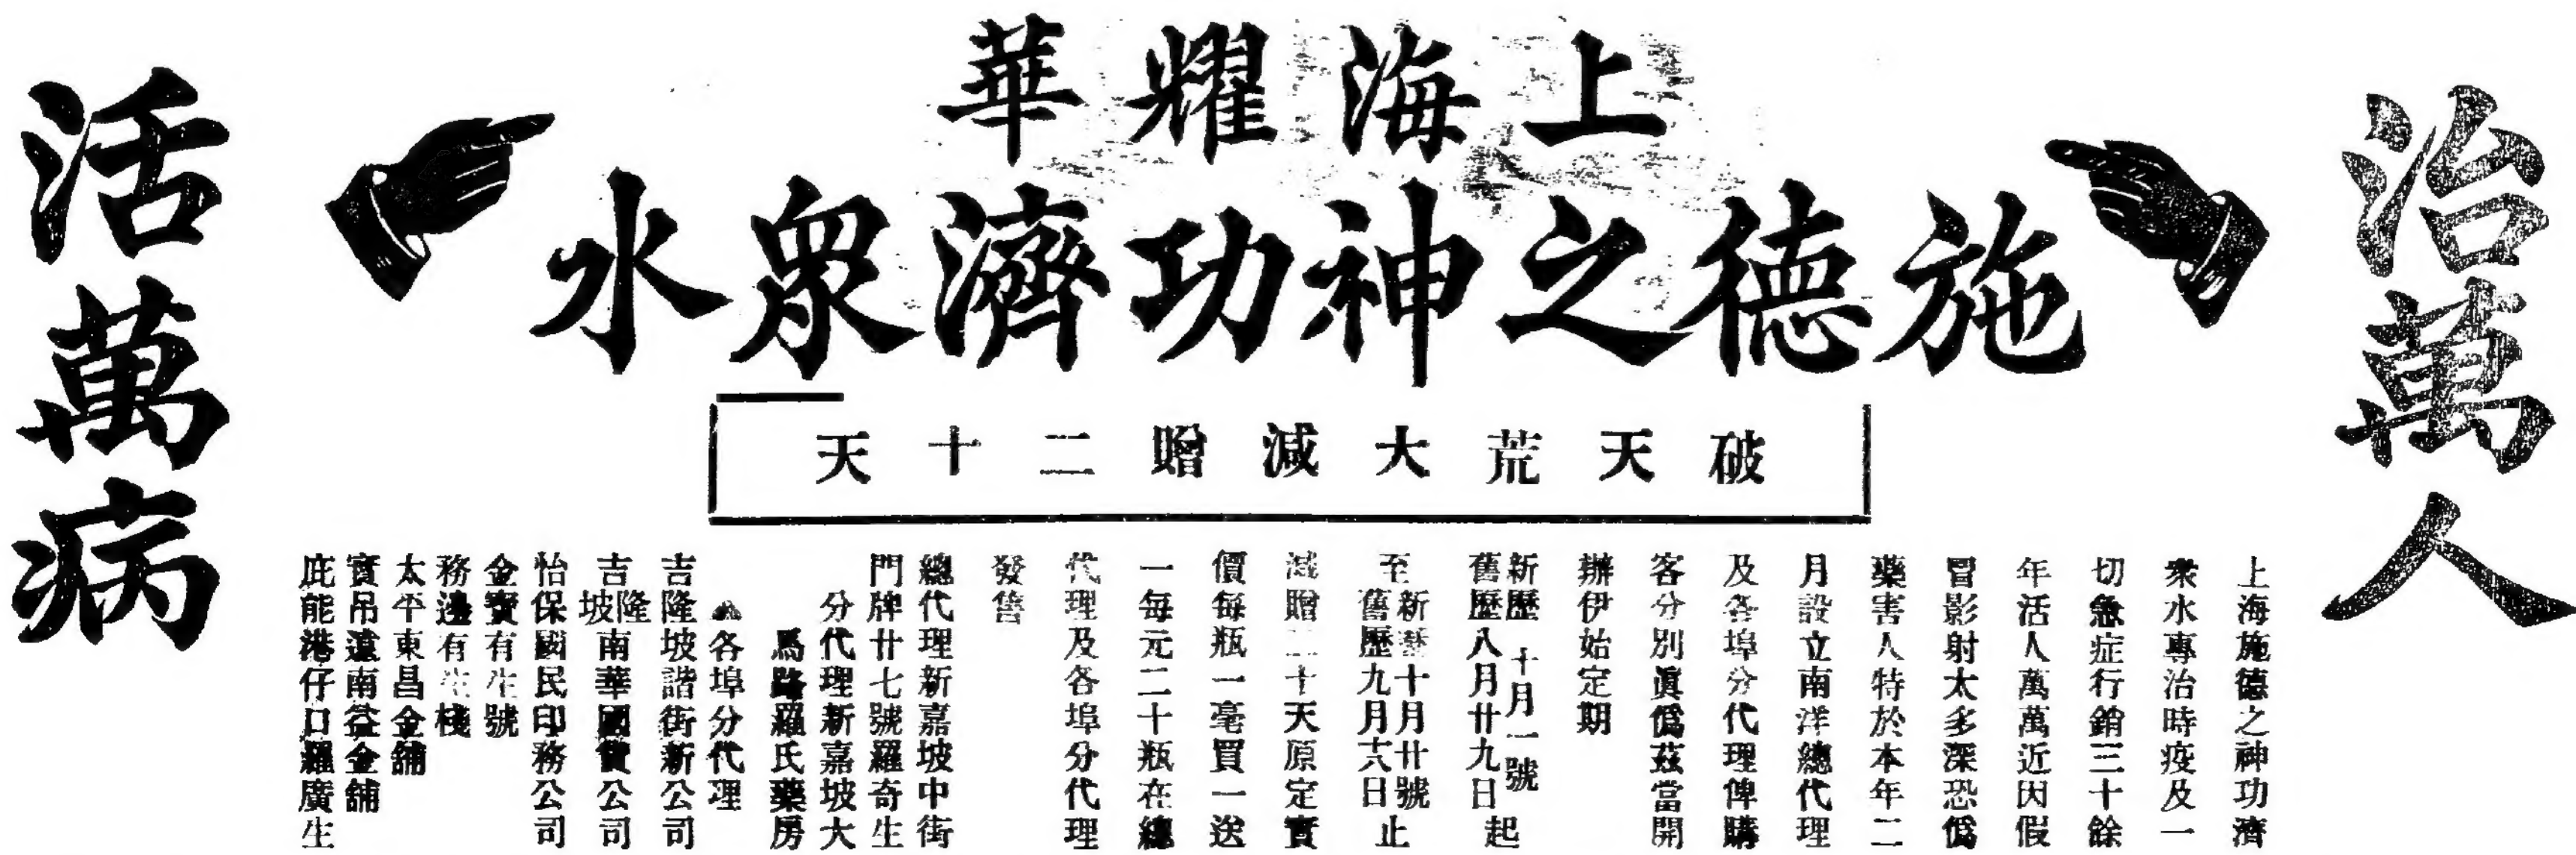 治萬人
上海耀華
施德之神功濟眾水
活萬病
破天荒大減贈二十天
上海施德之神功濟
衆水專治時疫及一
切急症行銷三十餘
年活人萬萬近因假
冒影射太多深恐偽
藥害人特於本年二
月設立南洋總代理
及各埠分代理俾購
客分別眞僞茲當開
辦伊始定期
新歷十月一號
舊歷八月廿九日起
至新曆十月廿號
舊歷九月十八日止
減贈二十天原定實
價每瓶一毫買一送
一每元二十瓶在總
代理及各埠分代理
發售
總代理新嘉坡中街
門牌廿七號羅奇生
分代理新嘉坡大
馬路羅氏藥房
各埠分代理
吉隆坡諧街新公司
吉隆坡南華國貨公司
怡保國民印務公司
金寶有生號
務邊有生棧
太平東昌金舖
實吊遠南益金舖
庇能港仔口羅廣生